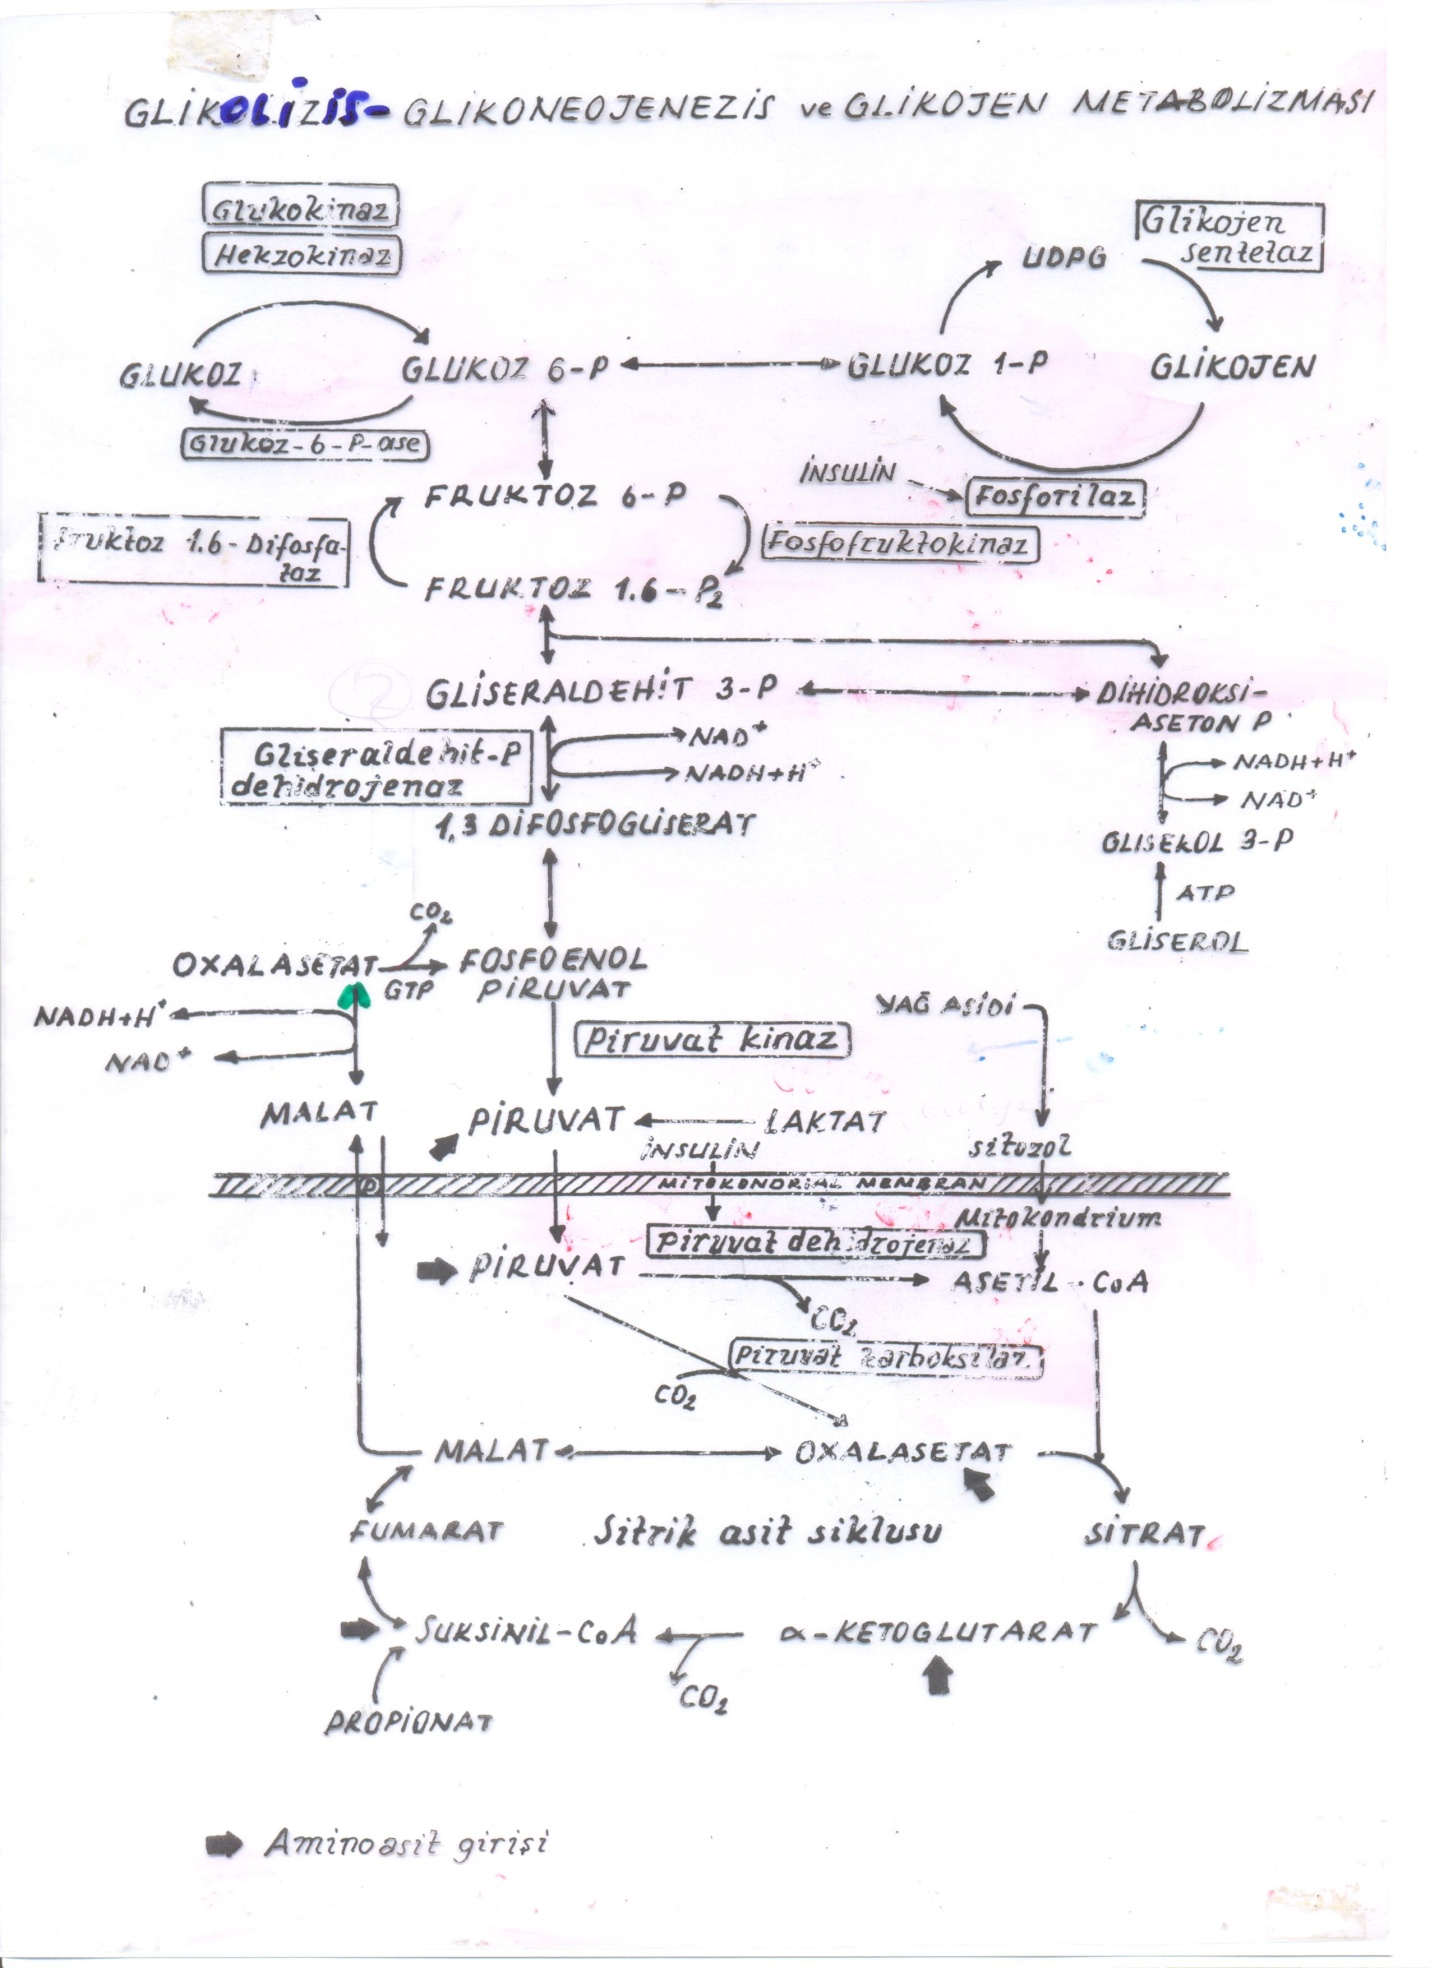 GLİKOLİZİS- GLİKONEOJENEZİS ve GLİKOJEN METABOLİZMASI
Glukokinaz
Hekzokinaz
Glikojen
sentetaz
UDPG
GLUKOZ
GLUKOZ 6-P
GLUKOZ 1-P
GLİKOJEN
Glukoz-6-P-ase
İNSULİN
Fosforilaz
FRUKTOZ 6-P
Fruktoz 1.6-Difosfa-
taz
Fosfofruktokinaz
FRUKTOZ 1.6-P2
GLİSERALDEHİT 3-P
DİHİDROKSİ-
ASETON P
Gliseraldehit-P
dehidrojenaz
NAD+
NADH+H+
NADH+H+
NAD+
1,3 DİFOSFOGLİSERAT
GLİSEROL 3-P
ATP
GLİSEROL
CO2
OXALASETAT
GTP
FOSFOENOL
PİRUVAT
NADH+H+
NAD+
YAĞ ASİDİ
Piruvat kinaz
MALAT
PİRUVAT
LAKTAT
İNSULİN
sitozol
P
MİTOKONDRİAL MEMBRAN
Mitokondrium
Piruvat dehidrojenaz
PİRUVAT
ASETİL-CoA
CO2
Piruvat karboksilaz
CO2
MALAT
OXALASETAT
FUMARAT
Sitrik asit siklusu
SİTRAT
SUKSİNİL-CoA
α-KETOGLUTARAT
CO2
CO2
PROPİONAT
Aminoasit girişi